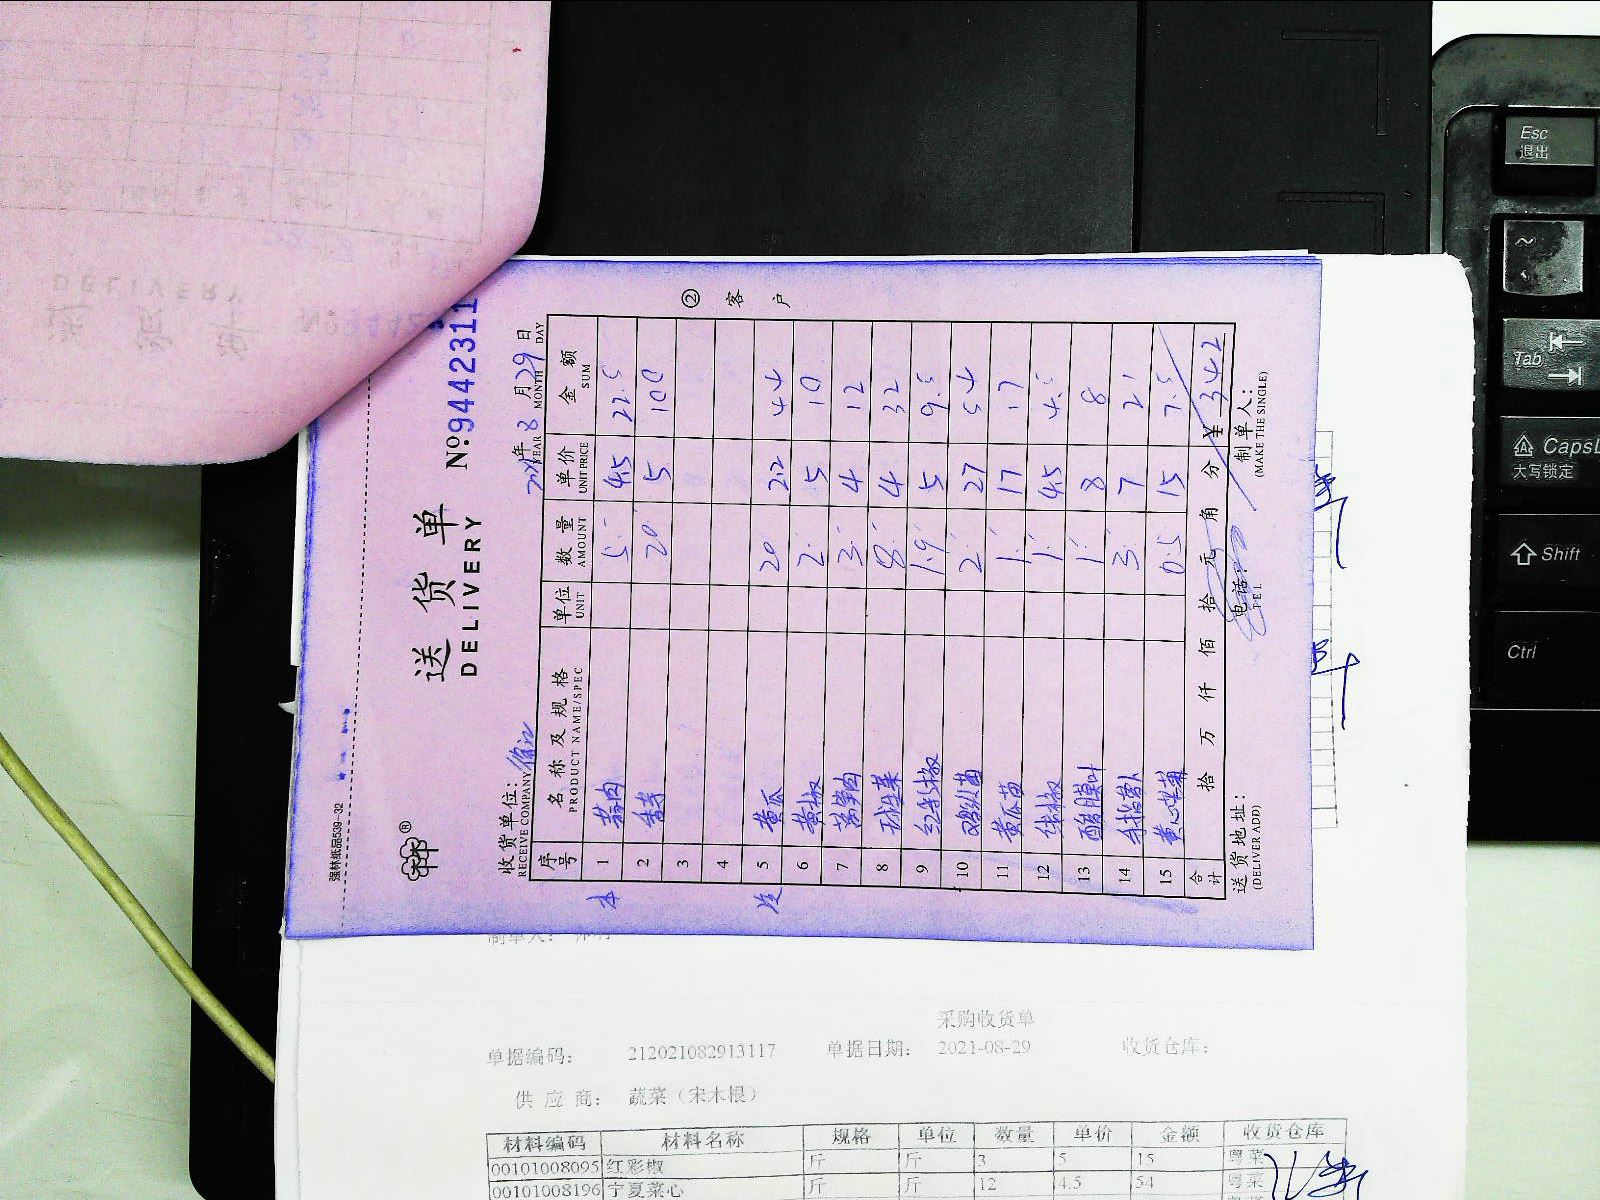 强林纸品539-32
®
送货单
DELIVERY
№:9442311
收货单位:
RECEIVE COMPANY
年 8 月 29 日
YEAR MONTH DAY
序号 名称及规格 单位 数量 单价 金额
PRODUCT NAME/SPEC UNIT AMOUNT UNIT PRICE SUM
1 蒜肉 5 4.5 22.5
2 20 5 100
3
4
5 黄瓜 20 2.2 44
6 黄椒 2 5 10
7 莴笋肉 3 4 12
8 球生菜 8 4 32
9 红尖椒 1.9 5 9.5
10 鸡纵菌 2 27 54
11 黄瓜苗 1 17 17
12 线椒 1 4.5 4.5
13 醋膜叶 1 8 8
14 手指萝卜 3 7 21
15 黄心 0.5 15 7.5
合计 拾 万 仟 佰 拾 元 角 分 ¥ 342
送货地址: 电话: 制单人:
(DELIVER ADD) TEL (MAKE THE SINGLE)
② 客户
采购收货单
单据编码: 212021082913117 单据日期: 2021-08-29 收货仓库:
供应商: 蔬菜（宋木根）
材料编码 材料名称 规格 单位 数量 单价 金额 收货仓库
00101008095 红彩椒 斤 斤 3 5 15 粤菜
00101008196 宁夏菜心 斤 斤 12 4.5 54 粤菜
Esc
退出
~
Tab
CapsL
大写锁定
Shift
Ctrl